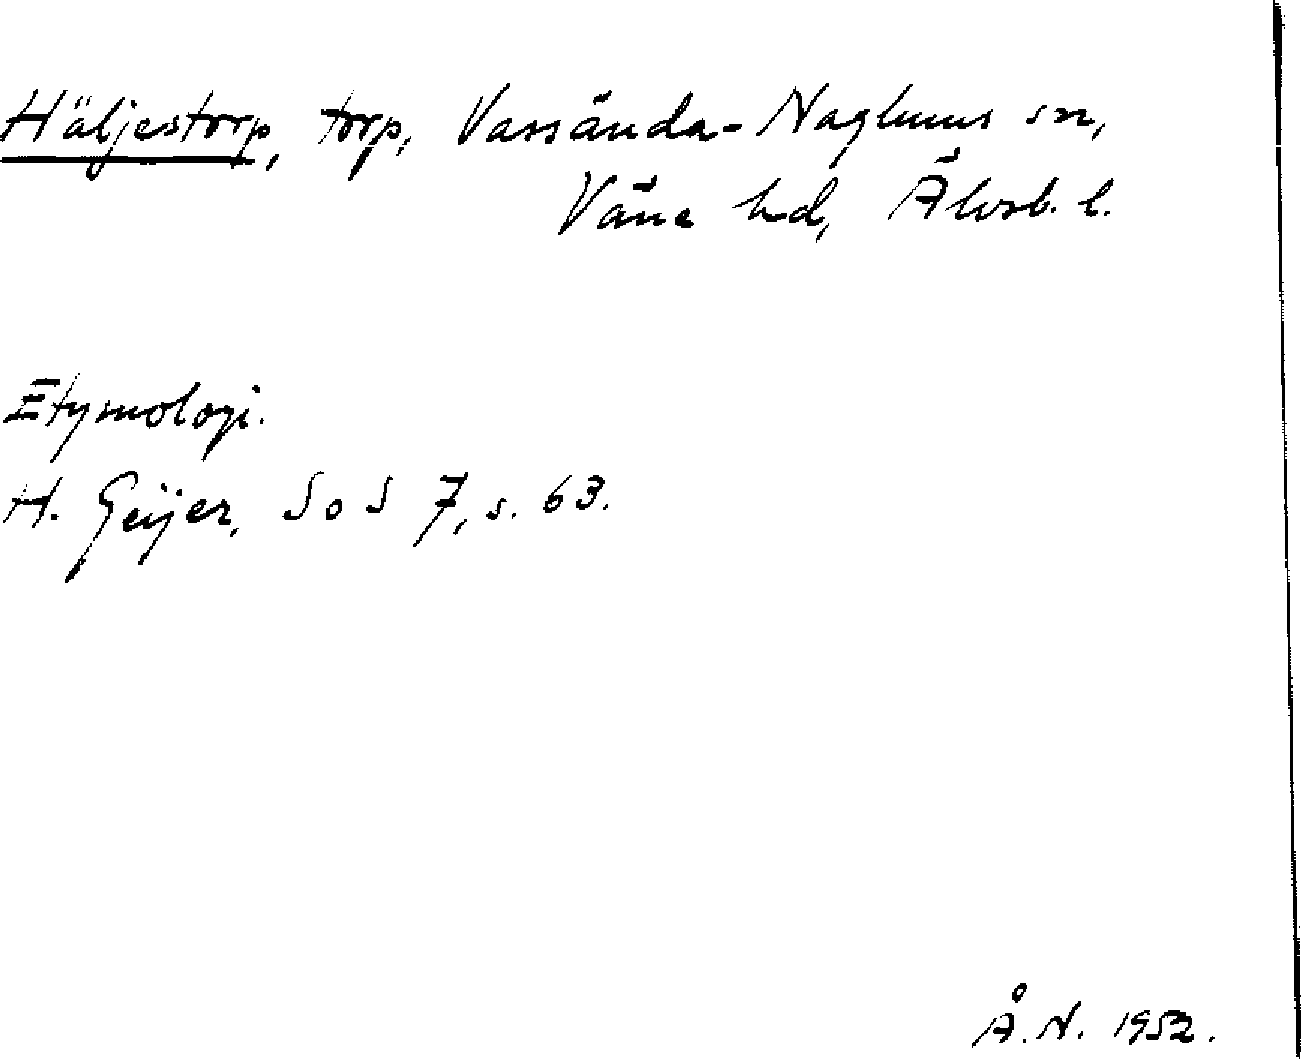 Häljestorp, torp, Vassända-Naglums sn,
Väne hd, Älvsb. l.
Etymologi.
H. Geijer, SoS 7, s. 63.
Å. N. 1952.